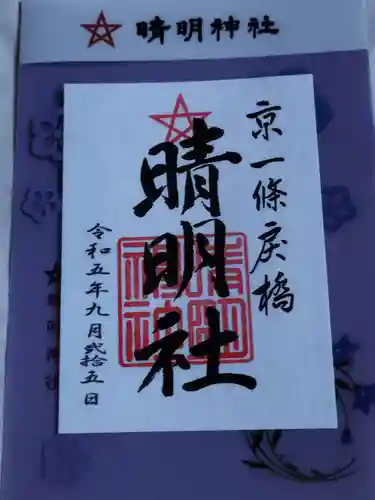 晴明神社
京一條戻橋
晴明社
晴明神社
令和五年九月弐拾五日